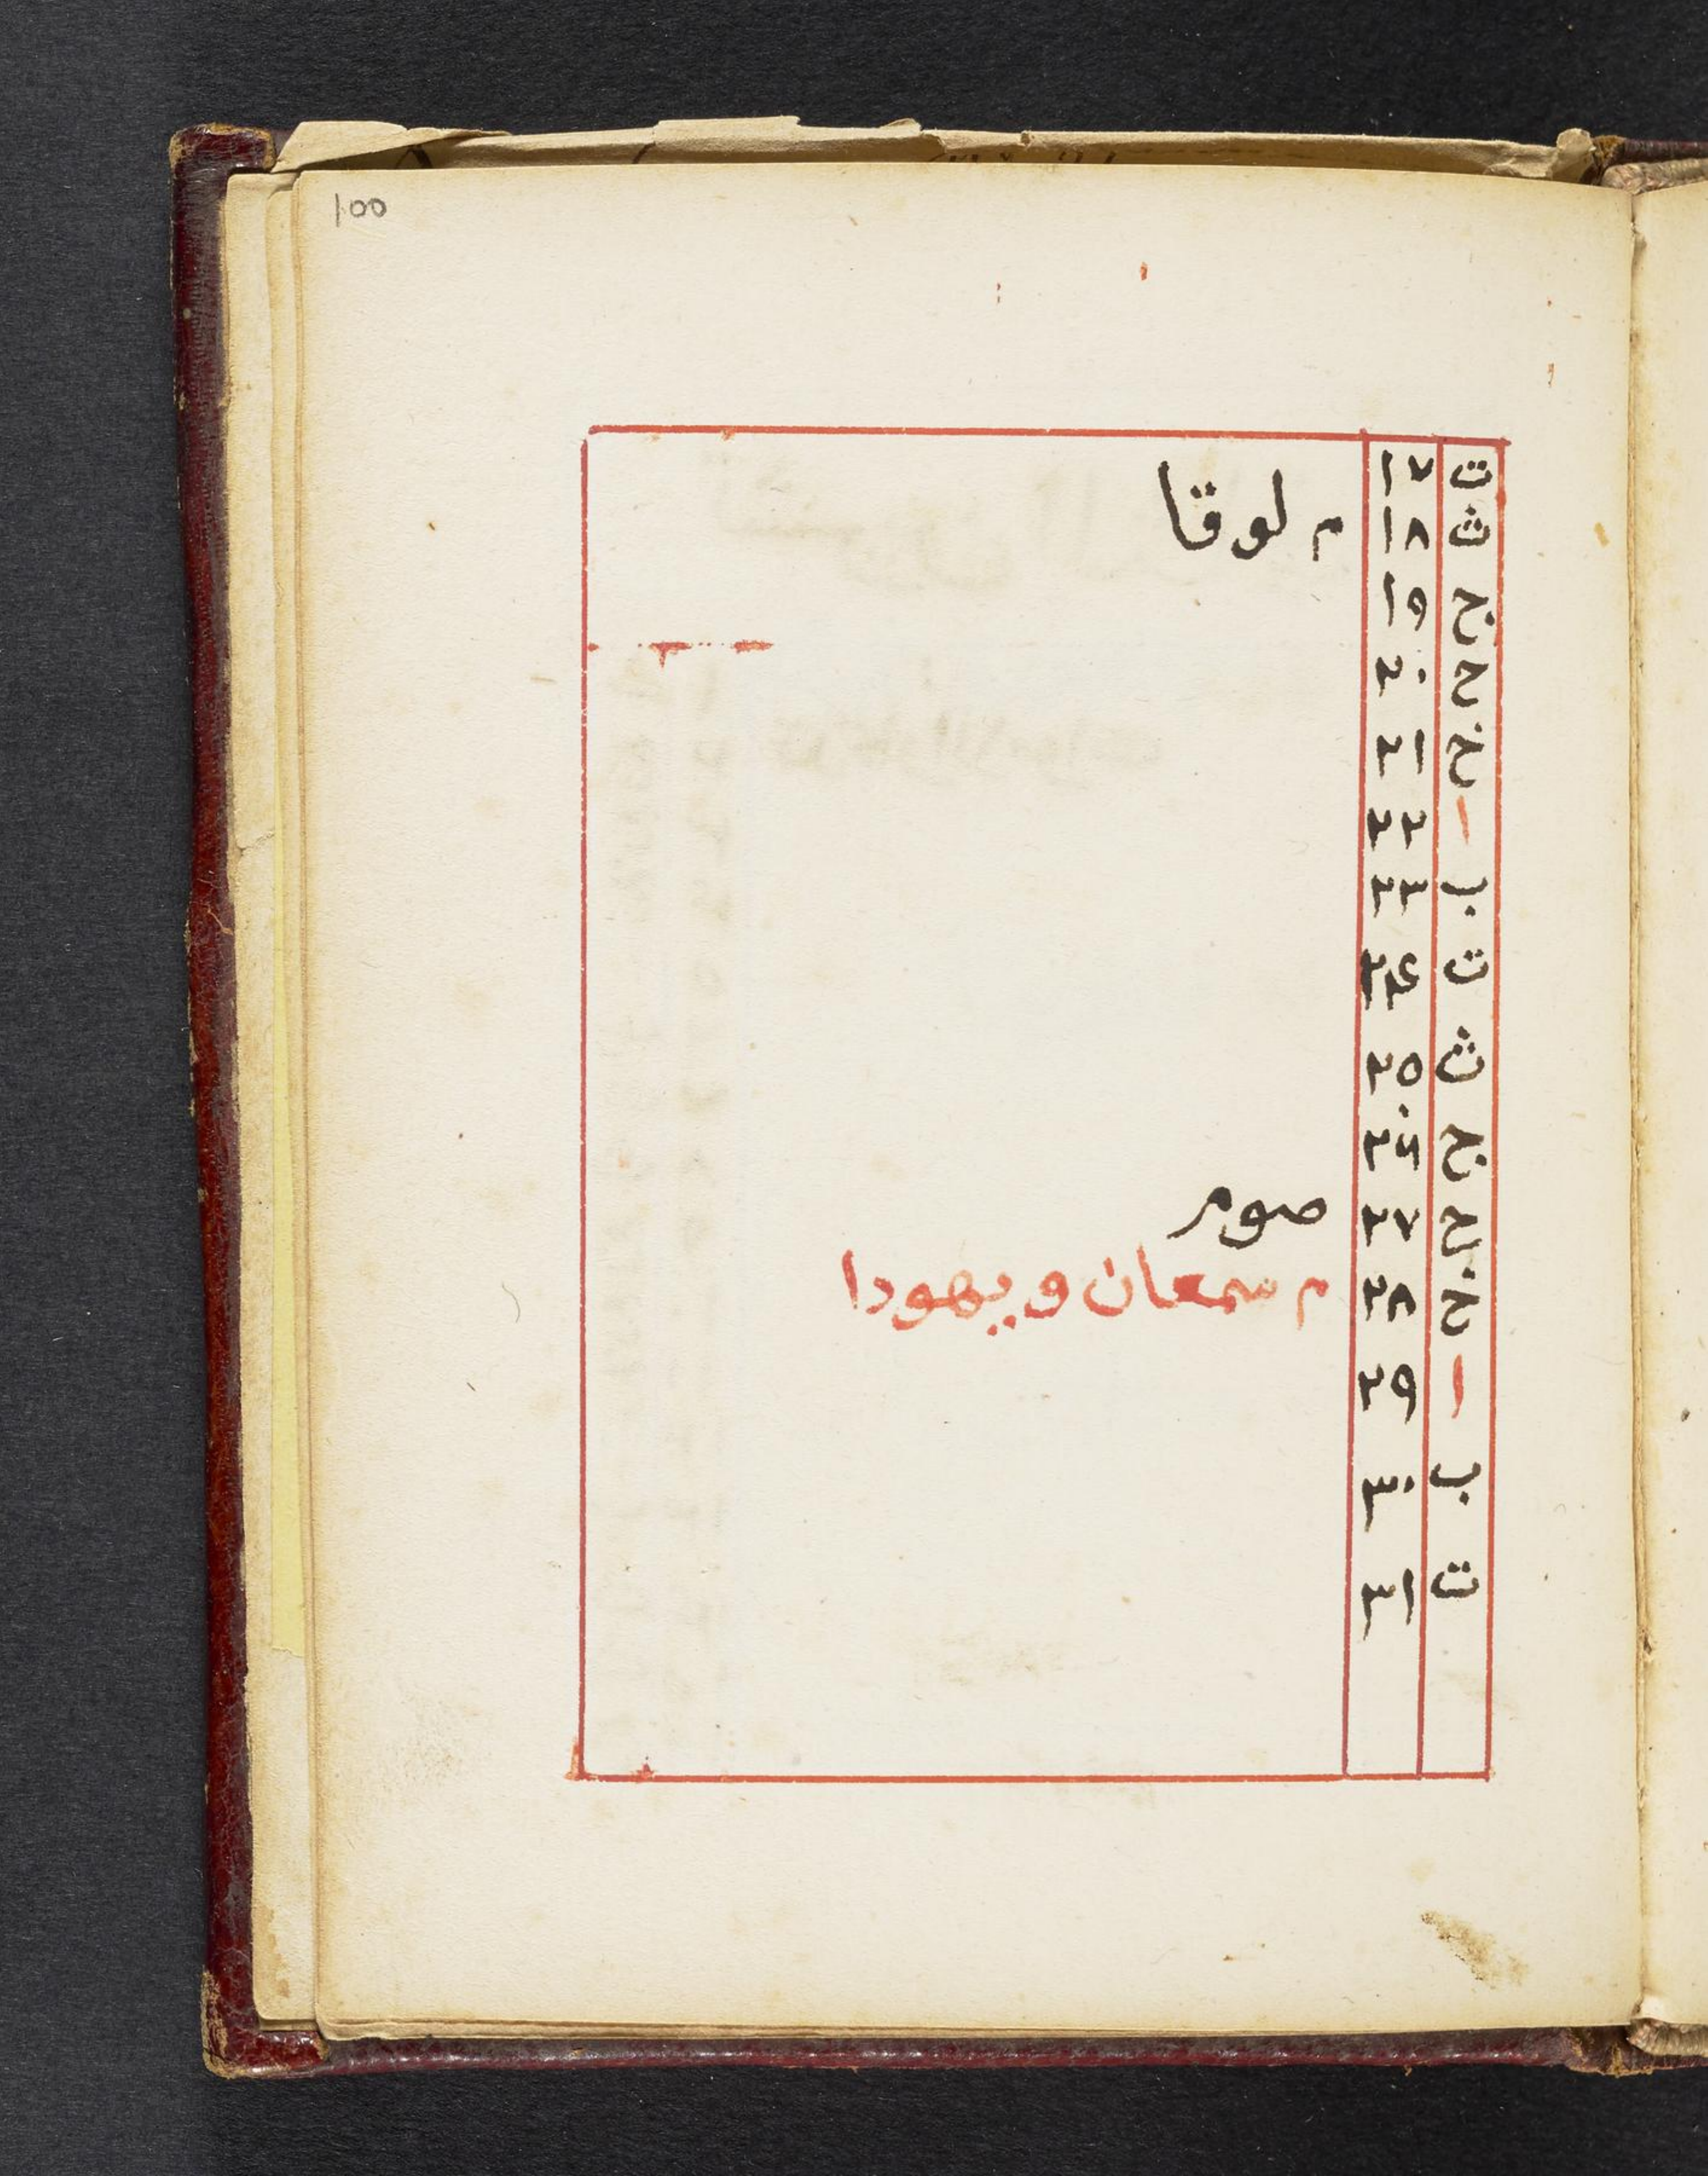 100
ت ١٧
ث ١٨ م لوقا
ج ١٩
ح ٢٠
خ ٢١
ا ٢٢
ب ٢٣
ت ٢٤
ث ٢٥
ج ٢٦
ح ٢٧ صوم
خ ٢٨ م سمعان و يهودا
ا ٢٩
ب ٣٠
ت ٣١